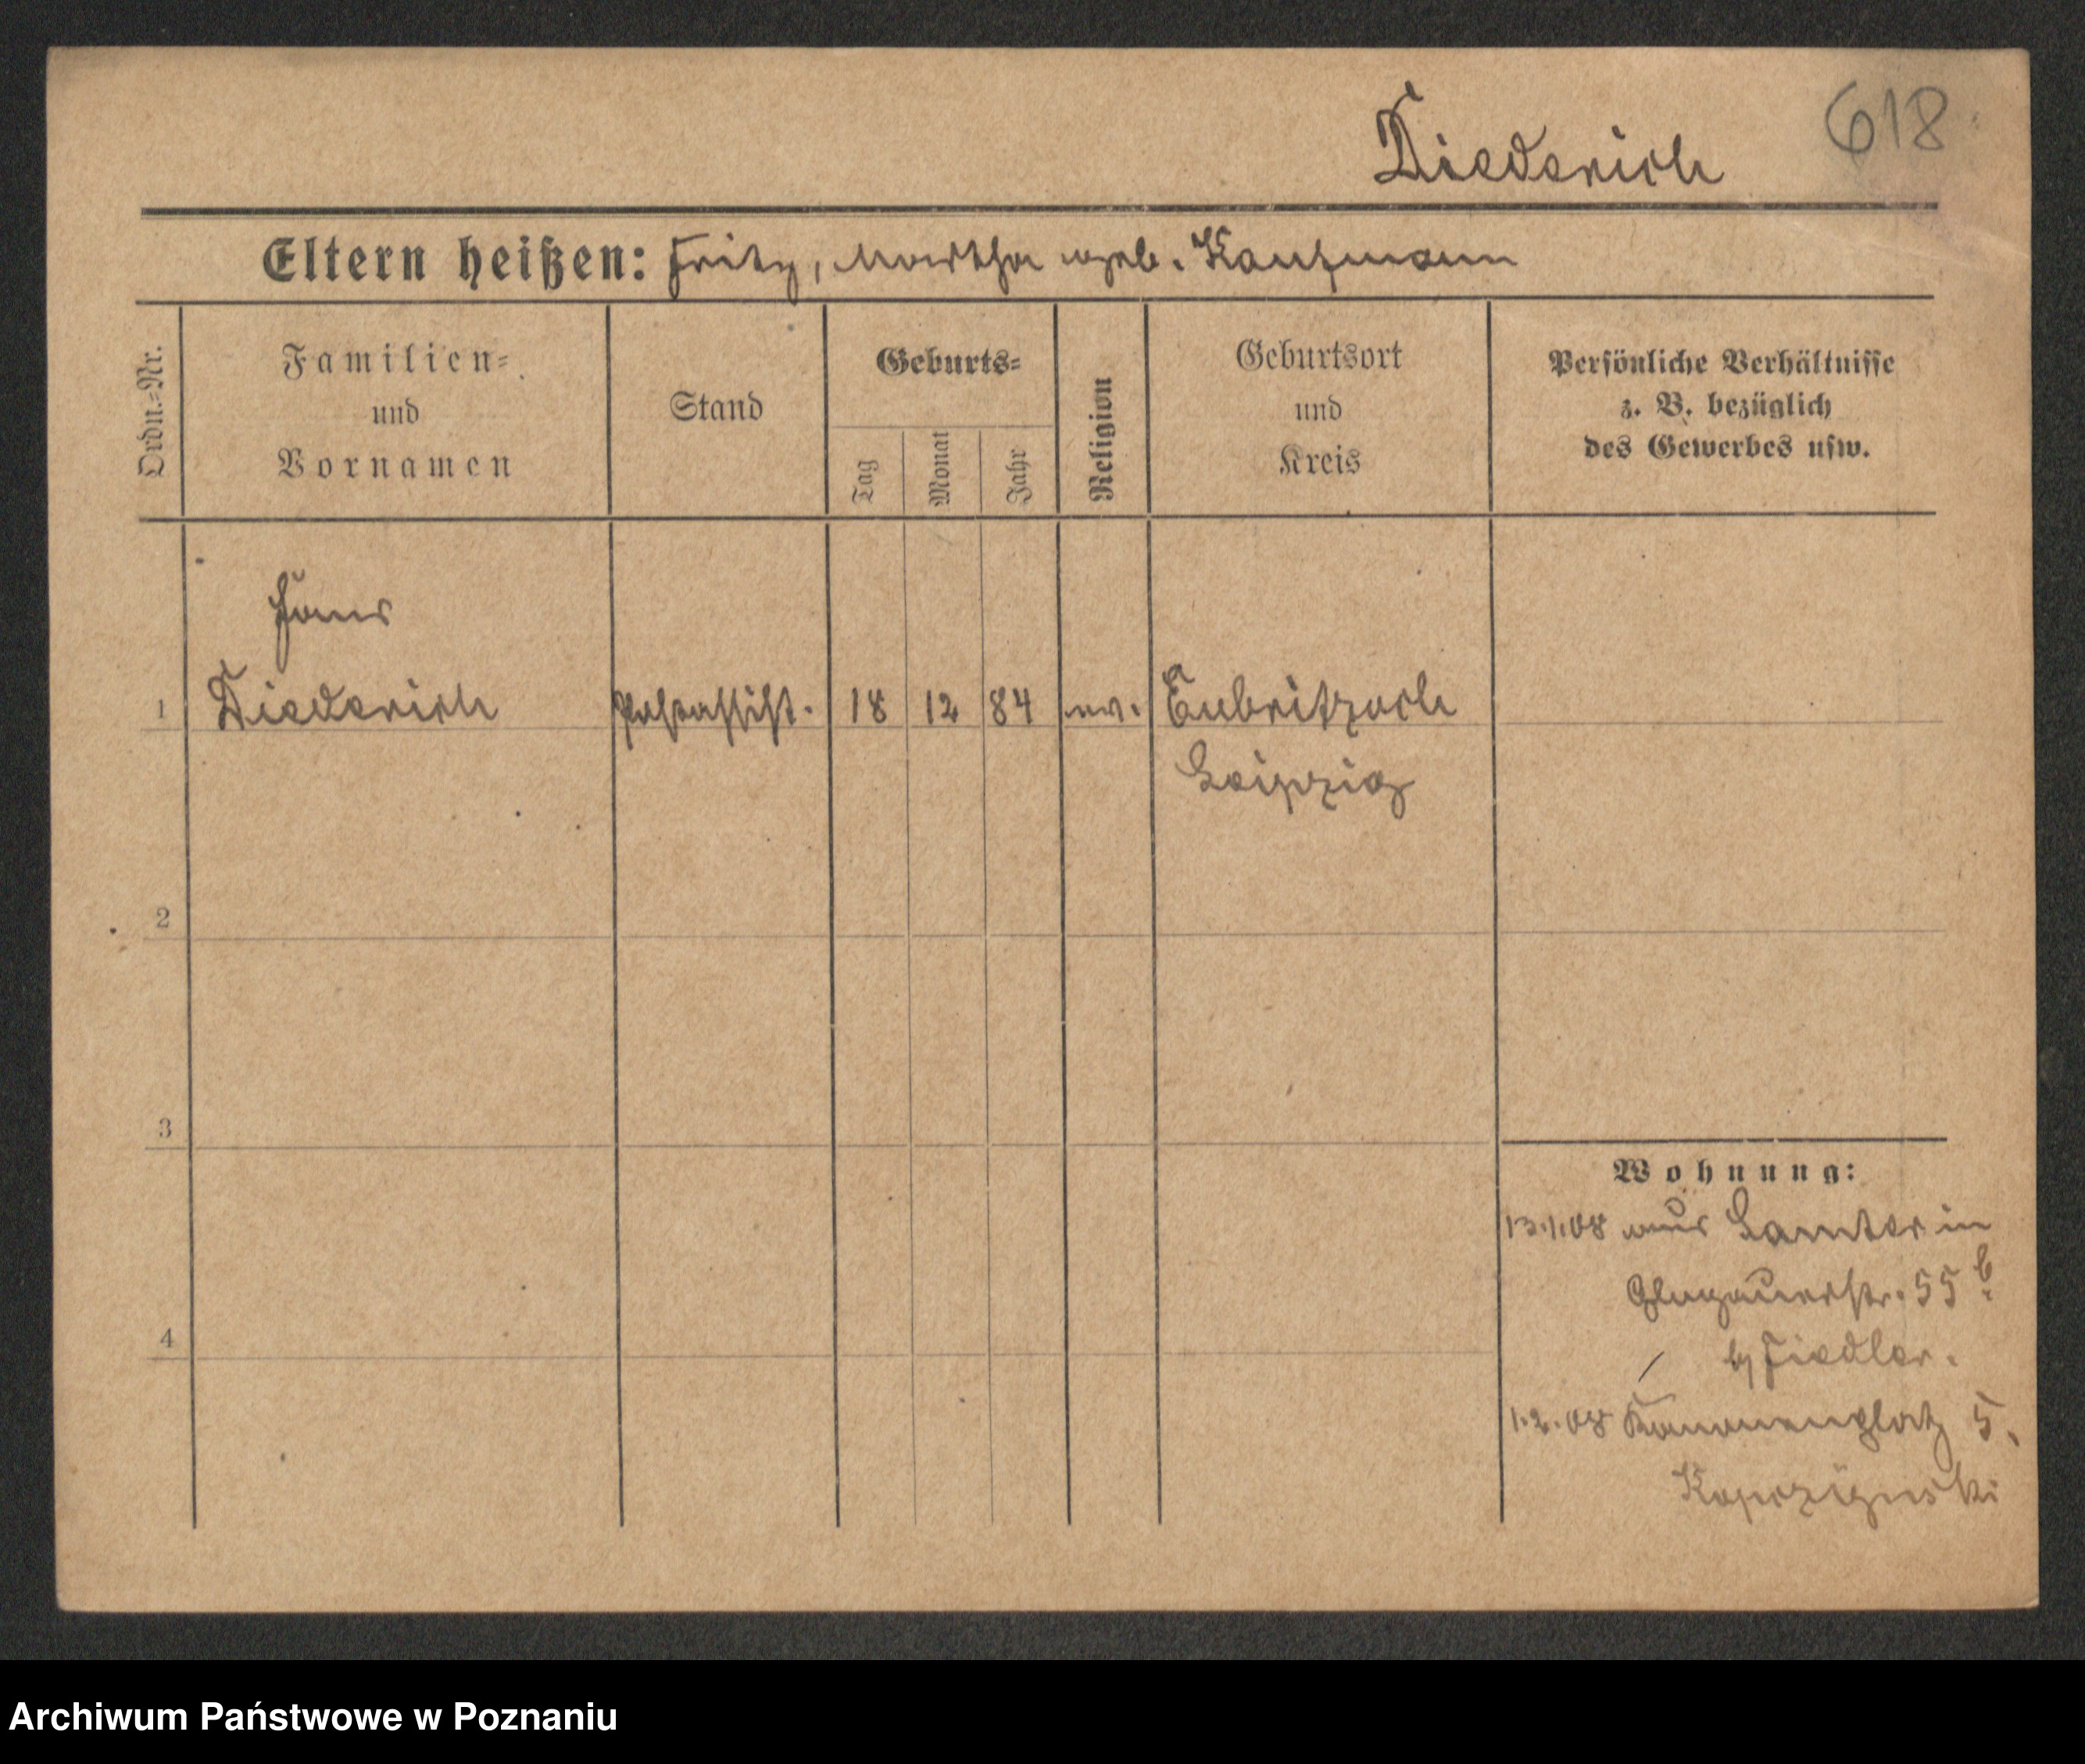 618
Diederich
Eltern heißen: Fritz, Martha geb. Kaufmann
Ordn.-Nr.
Familien-
und
Vornamen
Stand
Geburts-
Tag
Monat
Jahr
Religion
Geburtsort
und
Kreis
Persönliche Verhältnisse
z. B. bezüglich
des Gewerbes usw.
Hans
1 Diederich Postassist. 18 12 84 ev. Eutritzsch
Leipzig
2
3
4
Wohnung:
13.1.08 aus Samter in
Glogauerstr. 55 b.
by Fiedler.
1.2.08 Kanonenplatz 5.
Archiwum Państwowe w Poznaniu